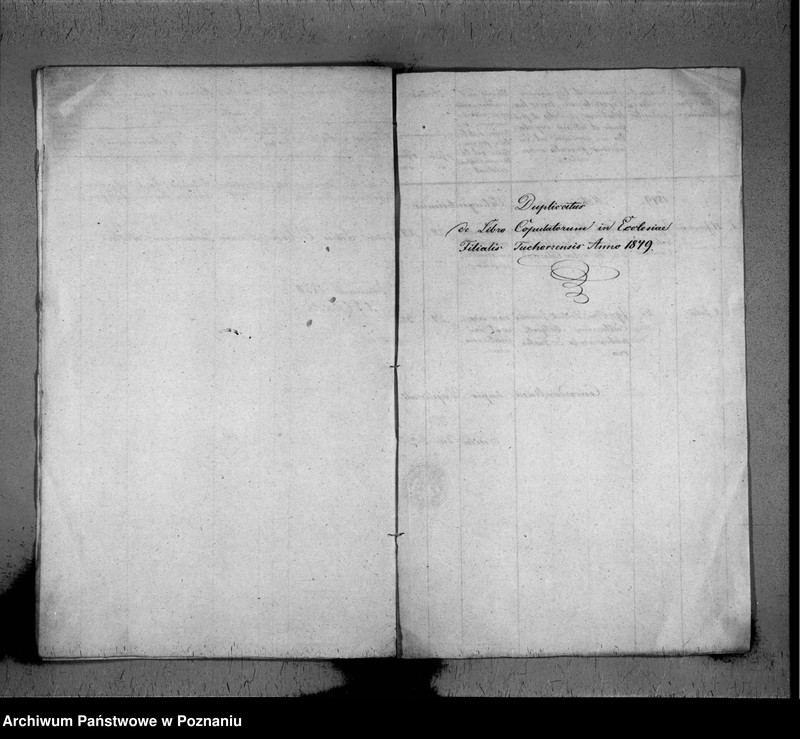 Duplicatus
de Libro Copulatorum in Ecclesiae
Filialis Tuchorzensis Anno 1849.
Archiwum Państwowe w Poznaniu